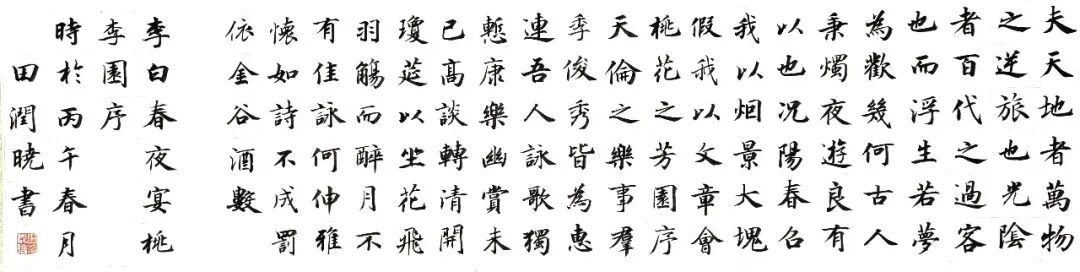 夫天地者萬物
之逆旅也光陰
者百代之過客
也而浮生若夢
為歡幾何古人
秉燭夜遊良有
以也況陽春召
我以烟景大塊
假我以文章會
桃花之芳園序
天倫之樂事羣
季俊秀皆為惠
連吾人詠歌獨
慙康樂幽賞未
已高談轉清開
瓊筵以坐花飛
羽觴而醉月不
有佳詠何伸雅
懷如詩不成罰
依金谷酒數
李白春夜宴桃
李園序
時於丙午春月
田潤曉書